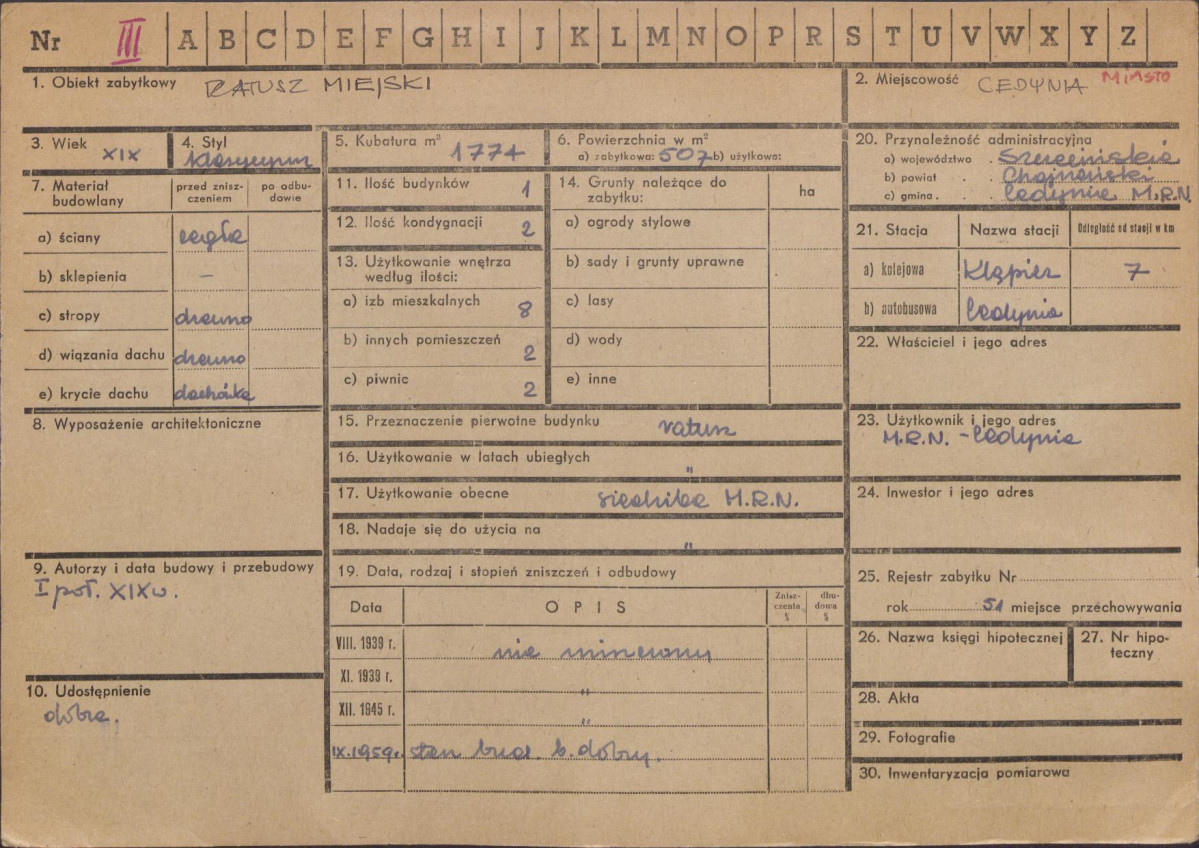 Nr III A B C D E F G H I J K L M N O P R S T U V W X Y Z
1. Obiekt zabytkowy RATUSZ MIEJSKI
2. Miejscowość CEDYNIA MIASTO
3. Wiek XIX
4. Styl klasycyzm
5. Kubatura m³ 1774
6. Powierzchnia w m²
a) zabytkowa: 507 b) użytkowa:
7. Materiał budowlany
przed zniszczeniem
po odbudowie
a) ściany cegła
b) sklepienia –
c) stropy drewno
d) wiązania dachu drewno
e) krycie dachu dachówka
8. Wyposażenie architektoniczne
9. Autorzy i data budowy i przebudowy
I poł. XIX w.
10. Udostępnienie
dobra.
11. Ilość budynków 1
12. Ilość kondygnacji 2
13. Użytkowanie wnętrza
według ilości:
a) izb mieszkalnych 8
b) innych pomieszczeń 2
c) piwnic 2
14. Grunty należące do
zabytku:
ha
a) ogrody stylowe
b) sady i grunty uprawne
c) lasy
d) wody
e) inne
15. Przeznaczenie pierwotne budynku ratusz
16. Użytkowanie w latach ubiegłych "
17. Użytkowanie obecne siedziba M.R.N.
18. Nadaje się do użycia na "
19. Data, rodzaj i stopień zniszczeń i odbudowy
Data
OPIS
Zniszczenia %
dbudowa %
VIII. 1939 r. nie
XI. 1939 r. "
XII. 1945 r. "
IX.1959r. stan bud. b. dobry.
20. Przynależność administracyjna
a) województwo . Szczecińskie
b) powiat . Chojeński
c) gmina . . Cedynia M.R.N.
21. Stacja
Nazwa stacji
Odległość od stacji w km
a) kolejowa 7
b) autobusowa Cedynia
22. Właściciel i jego adres
23. Użytkownik i jego adres
M.R.N. – Cedynia
24. Inwestor i jego adres
25. Rejestr zabytku Nr
rok 51 miejsce przechowywania
26. Nazwa księgi hipotecznej
27. Nr hipoteczny
28. Akta
29. Fotografie
30. Inwentaryzacja pomiarowa